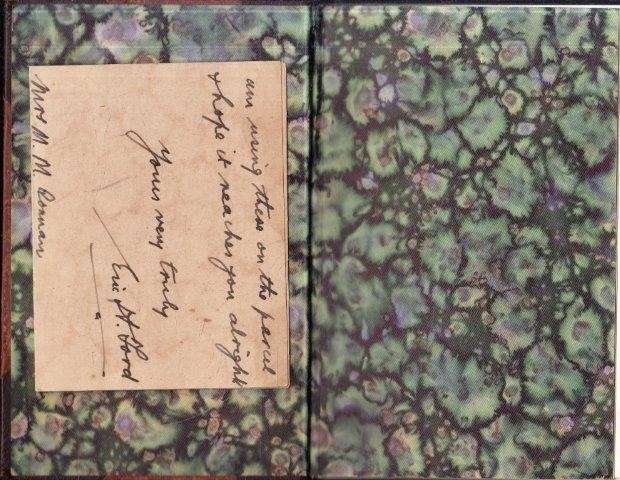 am using these on the parcel
& hope it reaches you alright
Yours very truly
Eric H. Ford
Mrs M. M.